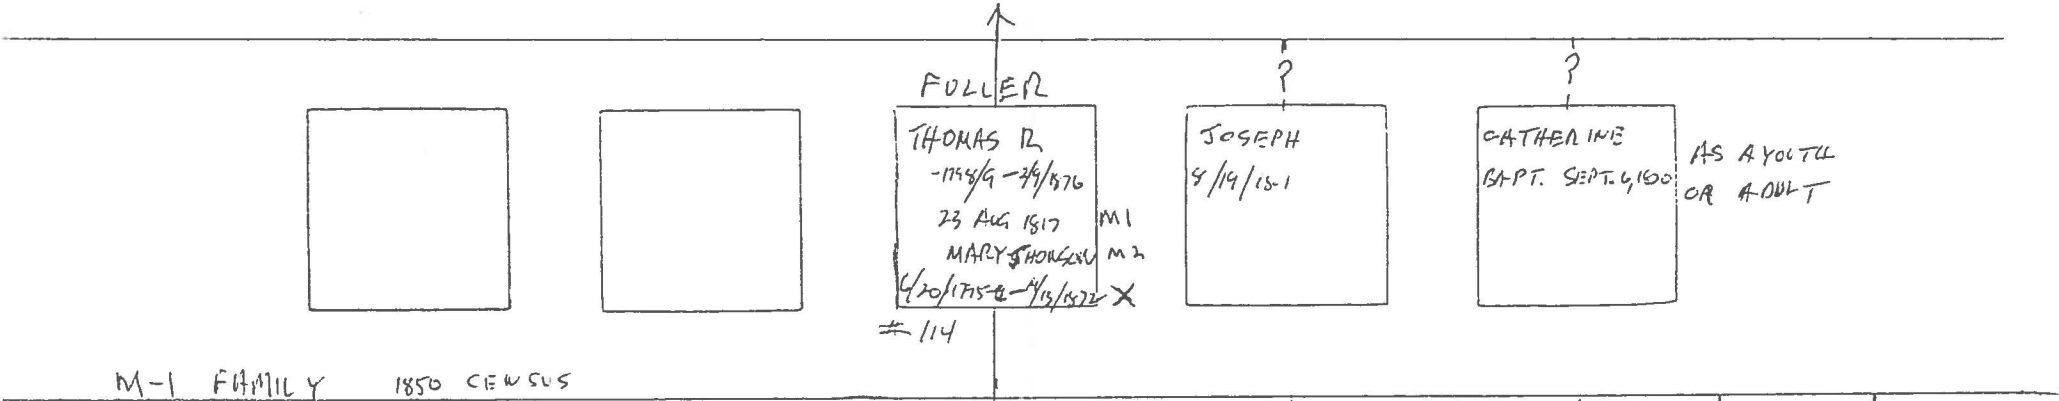 ?
?
FULLER
THOMAS R
-1798/9 - 2/9/1876
23 AUG 1817 M1
MARY JHONSON M2
- X
#114
JOSEPH
8/19/
CATHERINE
BAPT. SEPT. 6, 1800
AS A YOUTH
OR ADULT
M-1 FAMILY 1850 CENSUS